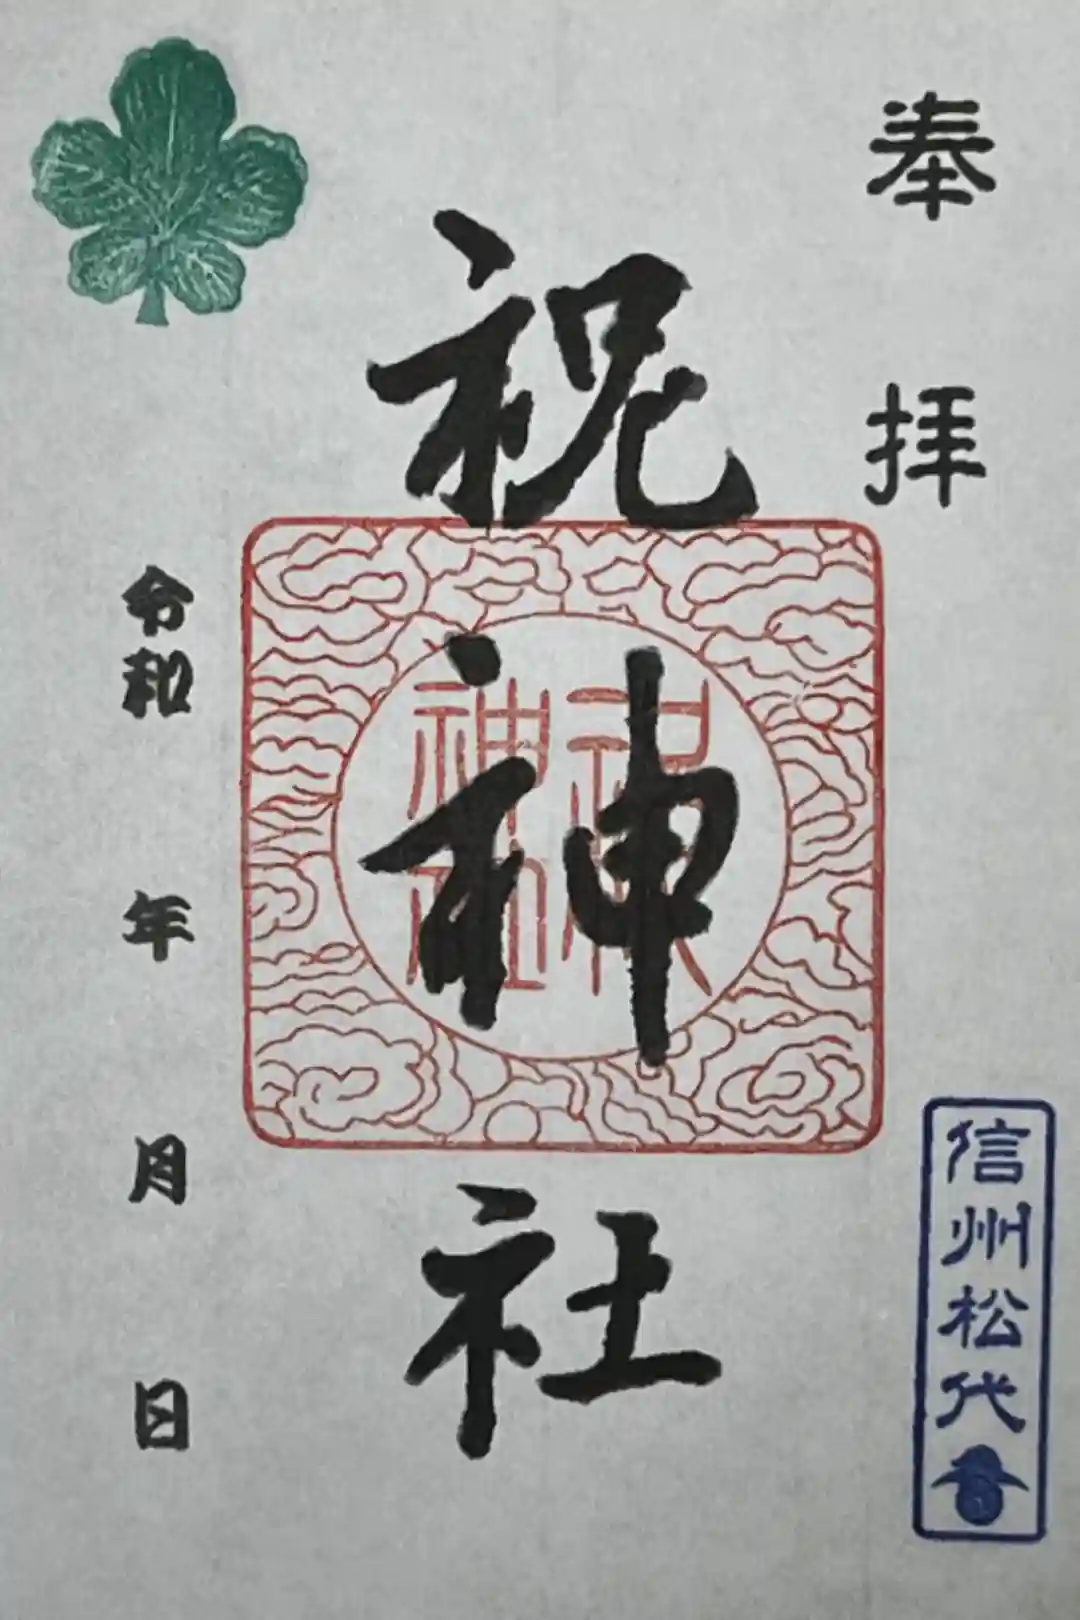 奉拝
祝神社
祝神社
信州松代
令和 年 月 日